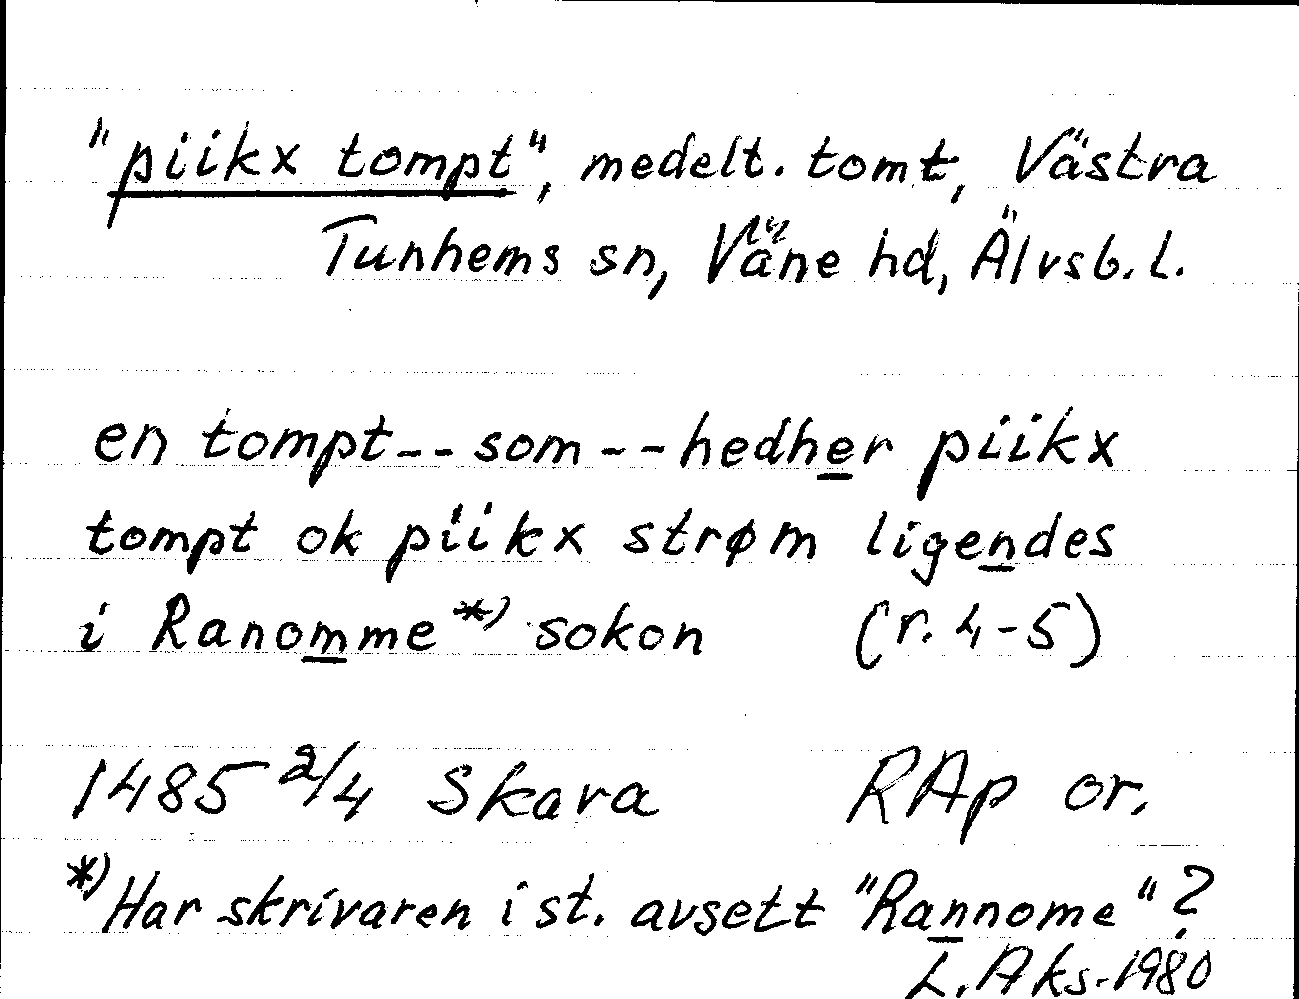 "piikx tompt", medelt. tomt, Västra
Tunhems sn, Väne hd, Älvsb. l.
en tompt -- som -- hedher piikx
tompt ok piikx strøm ligendes
i Ranomme *) sokon (r. 4-5)
1485 2/4 Skara RAp or.
*) Har skrivaren i st. avsett "Rannome"?
L. Aks. 1980